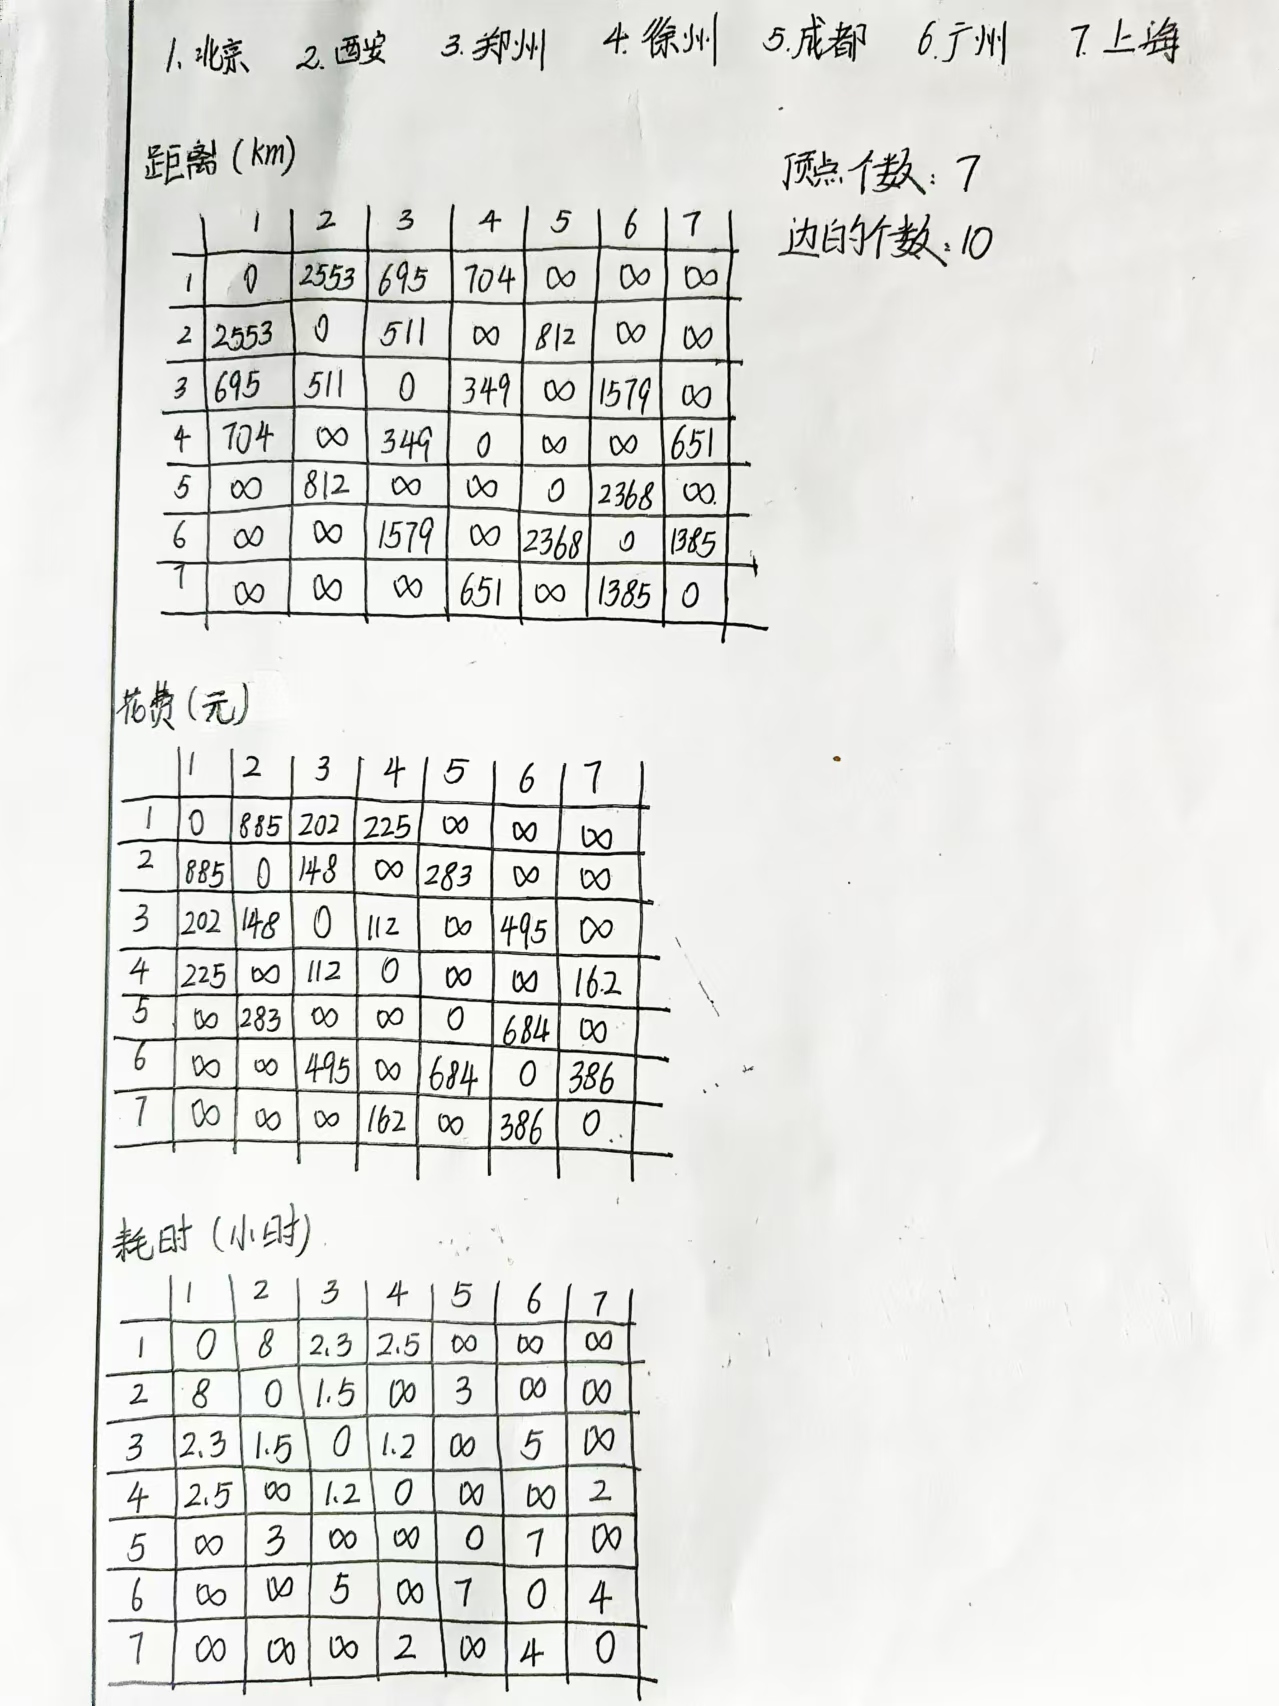 1. 北京 2. 西安 3. 郑州 4. 徐州 5. 成都 6. 广州 7. 上海
距离(km)
顶点个数: 7
边的个数: 10
1 2 3 4 5 6 7
1 0 2553 695 704 ∞ ∞ ∞
2 2553 0 511 ∞ 812 ∞ ∞
3 695 511 0 349 ∞ 1579 ∞
4 704 ∞ 349 0 ∞ ∞ 651
5 ∞ 812 ∞ ∞ 0 2368 ∞
6 ∞ ∞ 1579 ∞ 2368 0 1385
7 ∞ ∞ ∞ 651 ∞ 1385 0
花费(元)
1 2 3 4 5 6 7
1 0 885 202 225 ∞ ∞ ∞
2 885 0 148 ∞ 283 ∞ ∞
3 202 148 0 112 ∞ 495 ∞
4 225 ∞ 112 0 ∞ ∞ 162
5 ∞ 283 ∞ ∞ 0 684 ∞
6 ∞ ∞ 495 ∞ 684 0 386
7 ∞ ∞ ∞ 162 ∞ 386 0
耗时(小时)
1 2 3 4 5 6 7
1 0 8 2.3 2.5 ∞ ∞ ∞
2 8 0 1.5 ∞ 3 ∞ ∞
3 2.3 1.5 0 1.2 ∞ 5 ∞
4 2.5 ∞ 1.2 0 ∞ ∞ 2
5 ∞ 3 ∞ ∞ 0 7 ∞
6 ∞ ∞ 5 ∞ 7 0 4
7 ∞ ∞ ∞ 2 ∞ 4 0